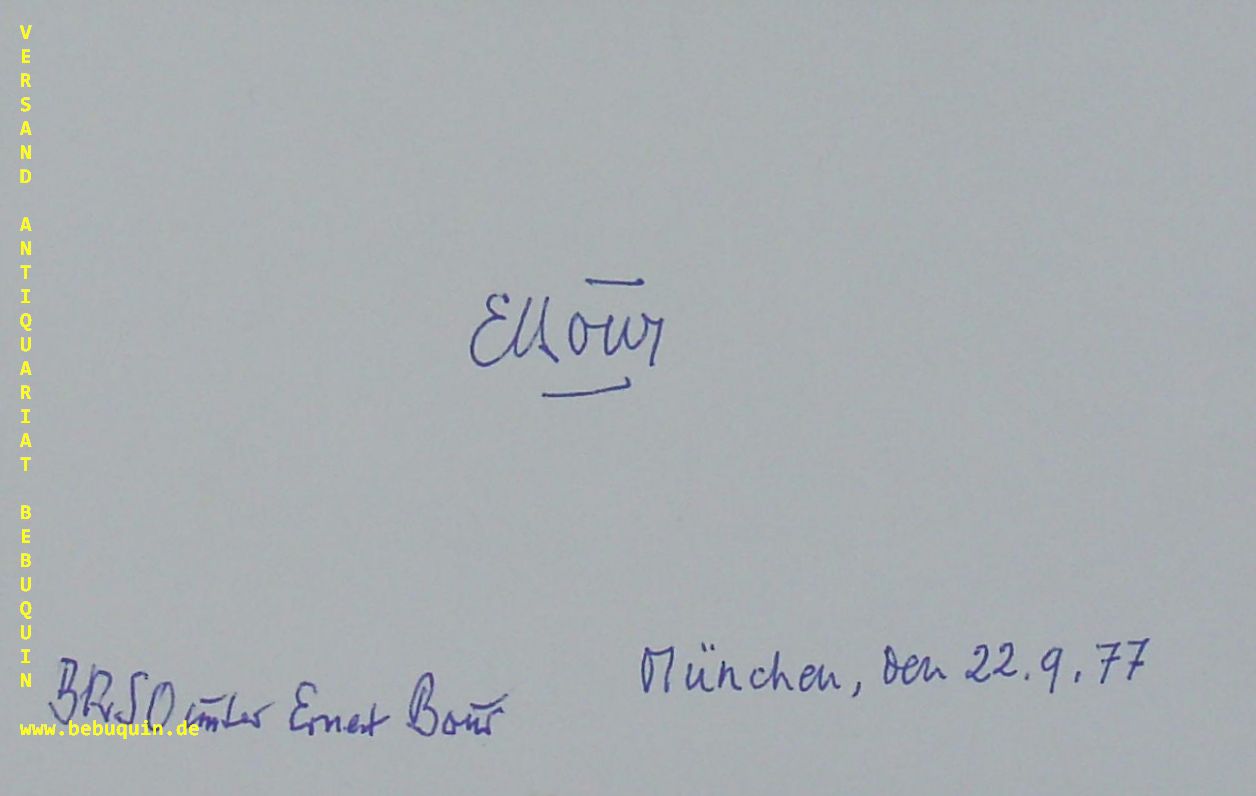 VERSAND ANTIQUARIAT BEBUQUIN
EBour
München, den 22.9.77
BRSO unter Ernest Bour
www.bebuquin.de